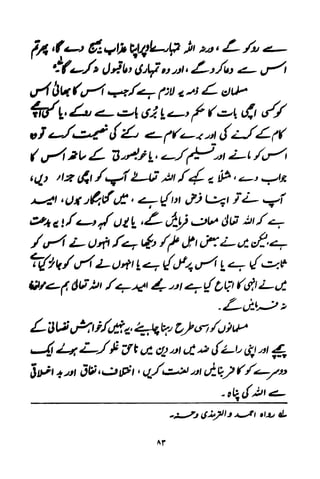 سے روکو گے ، ورنہ اللہ تمہارے اوپر اپنا عذاب بھیج دے گا، پھر تم
اس سے دعا کرو گے ، اور وہ تمہاری دعا قبول نہ کرے گا لہ
مسلمان کے ذمہ یہ لازم ہے کہ جب اس کا بھائی اس
کو کسی اچھی بات کا حکم دے یا بُری بات سے روکے ، یا کسی اچھے
کام کے کرنے کی اور برے کام سے رکنے کی نصیحت کرے تو وہ
اس کو مانے اور تسلیم کرے ، یا خوبصورتی کے ساتھ اس کا
جواب دے ، مثلاً یہ کہے کہ اللہ تعالےٰ آپ کو اچھی جزاء دیں،
آپ نے تو اپنا فرض ادا کیا ہے ، میں گناہگار ہوں ، امید
ہے کہ اللہ تعالیٰ معاف فرمائیں گے ، یا یوں کہہ دے کہ! یہ بدعت
ہے ، لیکن میں نے بعض اہل علم کو دیکھا ہے کہ انہوں نے اس کو
ثابت کیا ہے یا اس پر عمل کیا ہے یا انہوں نے اس کو جائز کیا ہے
میں نے انہی کا اتباع کیا ہے اور مجھے امید ہے کہ اللہ تعالیٰ ہم سے مواخذہ
نہ فرمائیں گے ۔
مسلمانوں کو اسی طرح رہنا چاہیئے ، یہ نہیں کہ خواہش نفسانی کے
پیچھے اور اپنی رائے کی ضد میں اور دین میں ناحق غلو کرتے ہوئے ایک
دوسرے کو کافر بنائیں اور لعنت کریں ، اختلاف، نفاق اور بد اخلاقی
سے اللہ کی پناہ ۔
لہ رواہ احمد و الترمذی وحسنہ ۔
۸۳